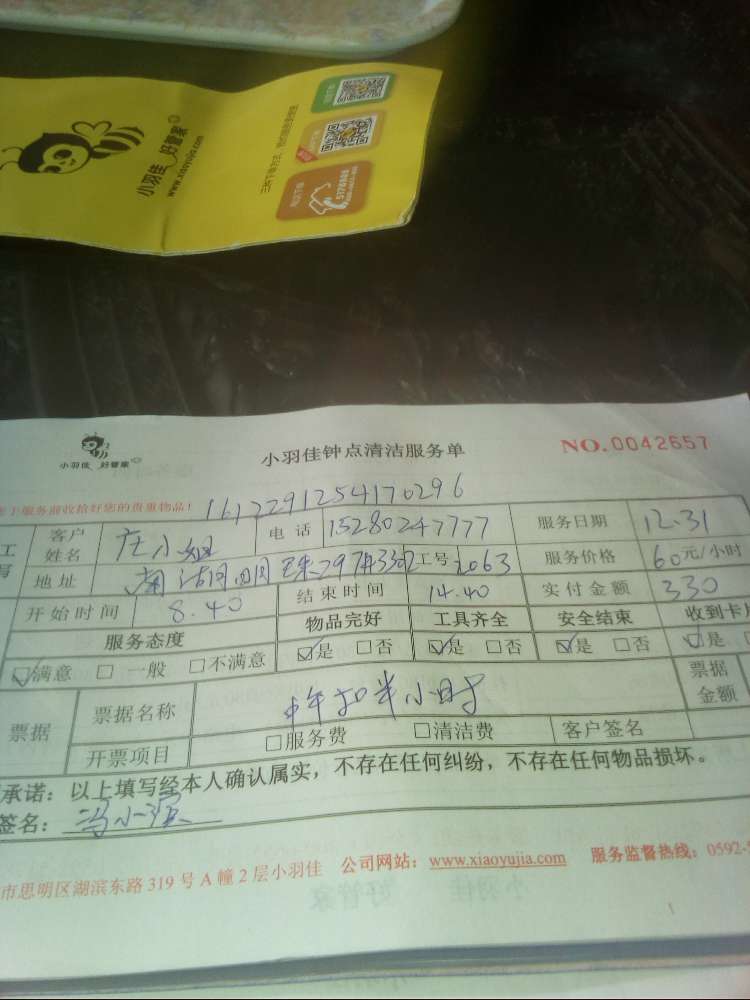 小羽佳 好管家
www.xiaoyujia.com
小羽佳 好管家
小羽佳钟点清洁服务单
NO.0042657
服务前收拾好您的贵重物品!
1612291254170296
客户姓名 庄小姐 电话 15280247777 服务日期 12.31
地址 工号 2063 服务价格 60元/小时
开始时间 8.40 结束时间 14.40 实付金额 330
服务态度 物品完好 工具齐全 安全结束 收到卡
满意 一般 不满意 是 否 是 否 是 否 是
票据 票据名称 半小时 票据金额
开票项目 服务费 清洁费 客户签名
承诺:以上填写经本人确认属实,不存在任何纠纷,不存在任何物品损坏。
签名:
市思明区湖滨东路319号A幢2层小羽佳 公司网站:www.xiaoyujia.com 服务监督热线:0592-